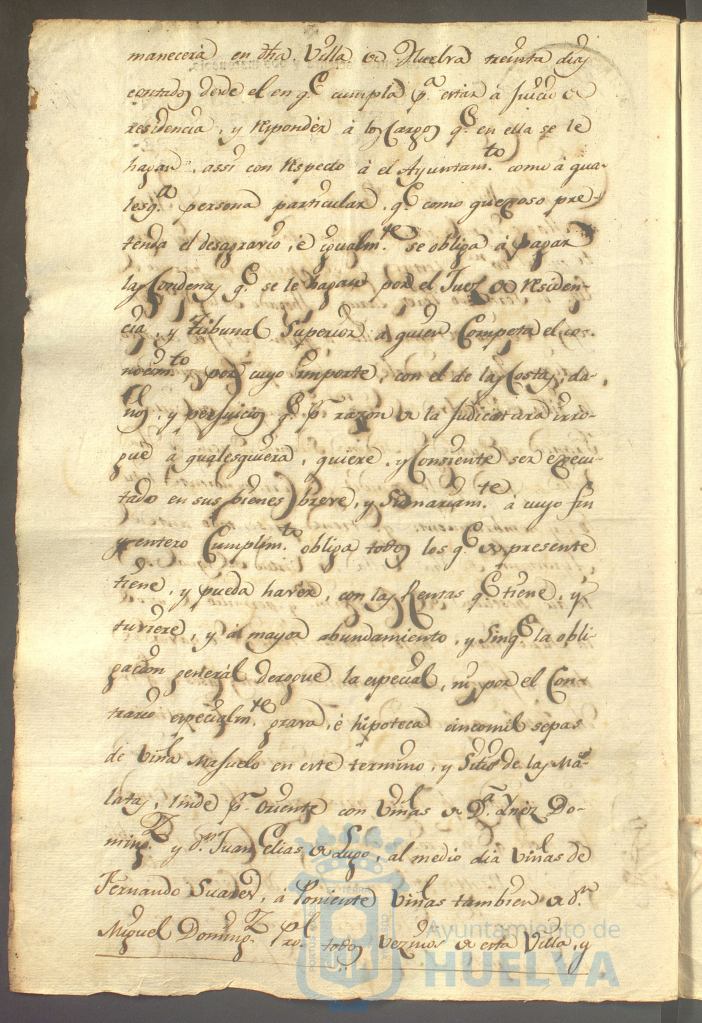 manecera en dha. Villa de Huelva treinta dias
contados desde el en q.e cumpla p.a estar à Juicio de
residencia, y responder à los Cargos q.e en ella se le
hagan, assi con respecto à el Ayuntam.to como à qua-
lesq.a persona particular, q.e como quexoso pre-
tenda el desagravio, è igualm.te se obliga à pagar
las Condenas q.e se le hagan por el Juez de residen-
cia, y Tribunal Superior à quien Competa el co-
nocim.to, por cuyo importe, con el de las Costas, da-
ños, y perjuicios q.e p.r razon de la Judicatura irro-
gue à qualesquiera, quiere, y Consiente ser execu-
tado en sus bienes breve, y Sumariam.te à cuyo fin
y entero Cumplim.to obliga todos los q.e de presente
tiene, y pueda haver, con las Rentas q.e tiene, y
tuviere, y à mayor abundamiento, y Sinq.e la obli-
gacion general derogue la especial, ni por el Con-
trario especialm.te grava, è hipoteca cincomil sepas
de Viña Masuelo en este termino, y Sitio de las Ma-
latas, linde p.r Oriente con Viñas de D.a Ynèz Do-
ming.z y d.n Juan Elias de Lugo, al medio dia Viñas de
Fernando Suarez, à Poniente Viñas tambien de d.n
Miguel Doming.z Pro. todos Vezinos de esta Villa, y
Ayuntamiento de
HUELVA